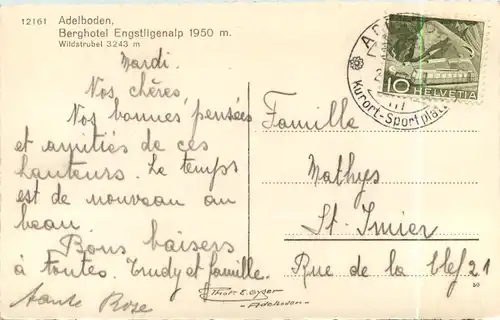 12161 Adelboden,
Berghotel Engstligenalp 1950 m.
Wildstrubel 3243 m
Mardi.
Nos chères,
Nos bonnes pensées
et amitiés de ces
hauteurs. Le temps
est de nouveau au
beau.
Bons baisers
à toutes. Trudy et famille.
tante Rose
10 HELVETIA
Kurort-Sportplatz
Famille
Mathys
St-Imier
Rue de la clef 21
Phot. E. Gyger
- Adelboden -